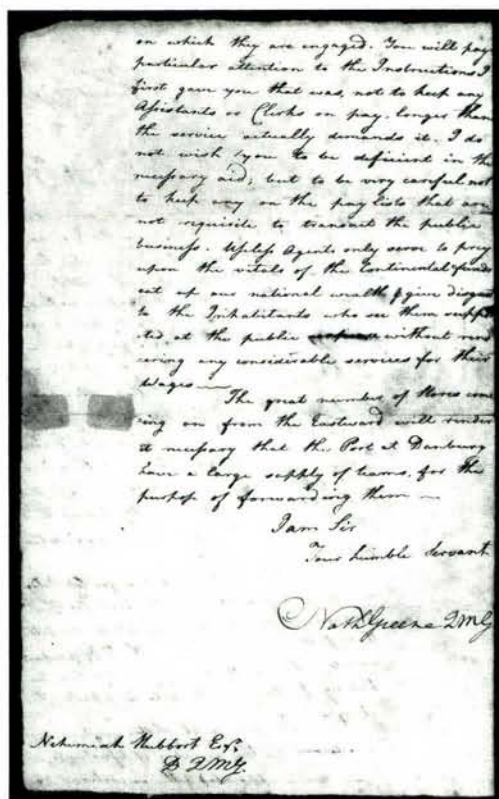 on which they are engaged. You will pay
particular attention to the Instructions I
first gave you that was, not to keep any
Assistants or Clerks on pay, longer than
the service actually demands it. I do
not wish you to be deficient in the
necessary aid; but to be very careful not
to keep any on the pay lists that are
not requisite to transact the public
business. Useless Agents only serve to prey
upon the vitals of the Continental funds
eat up our national wealth & give disgust
to the Inhabitants who see them suppor
ted, at the public without rend
ering any considerable services for their
wages —
The great number of Stores com
ing on from the Eastward will render
it necessary that the Post at Danbury
have a large supply of teams, for the
purpose of forwarding them —
I am Sir
Your humble Servant
Nath Greene QMG
Nehemiah Hubbort Esqr.
D QMG.